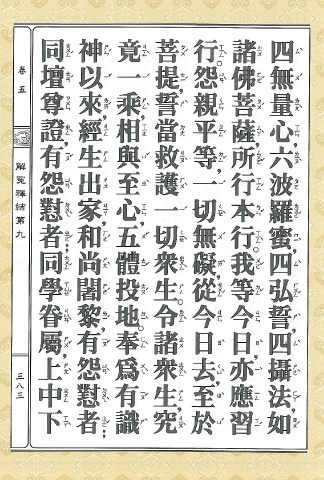 四無量心,六波羅蜜,四弘誓,四攝法如
諸佛菩薩所行本行,我等今日亦應習
行。怨親平等,一切無礙,從今日去,至於
菩提,誓當救護一切衆生。令諸衆生究
竟一乘,相與至心,五體投地,奉爲有識
神以來,經生出家,和尚闍黎,有怨懟者,
同壇尊證,有怨懟者;同學眷屬,上中下
卷五
解冤釋結第九
三八三